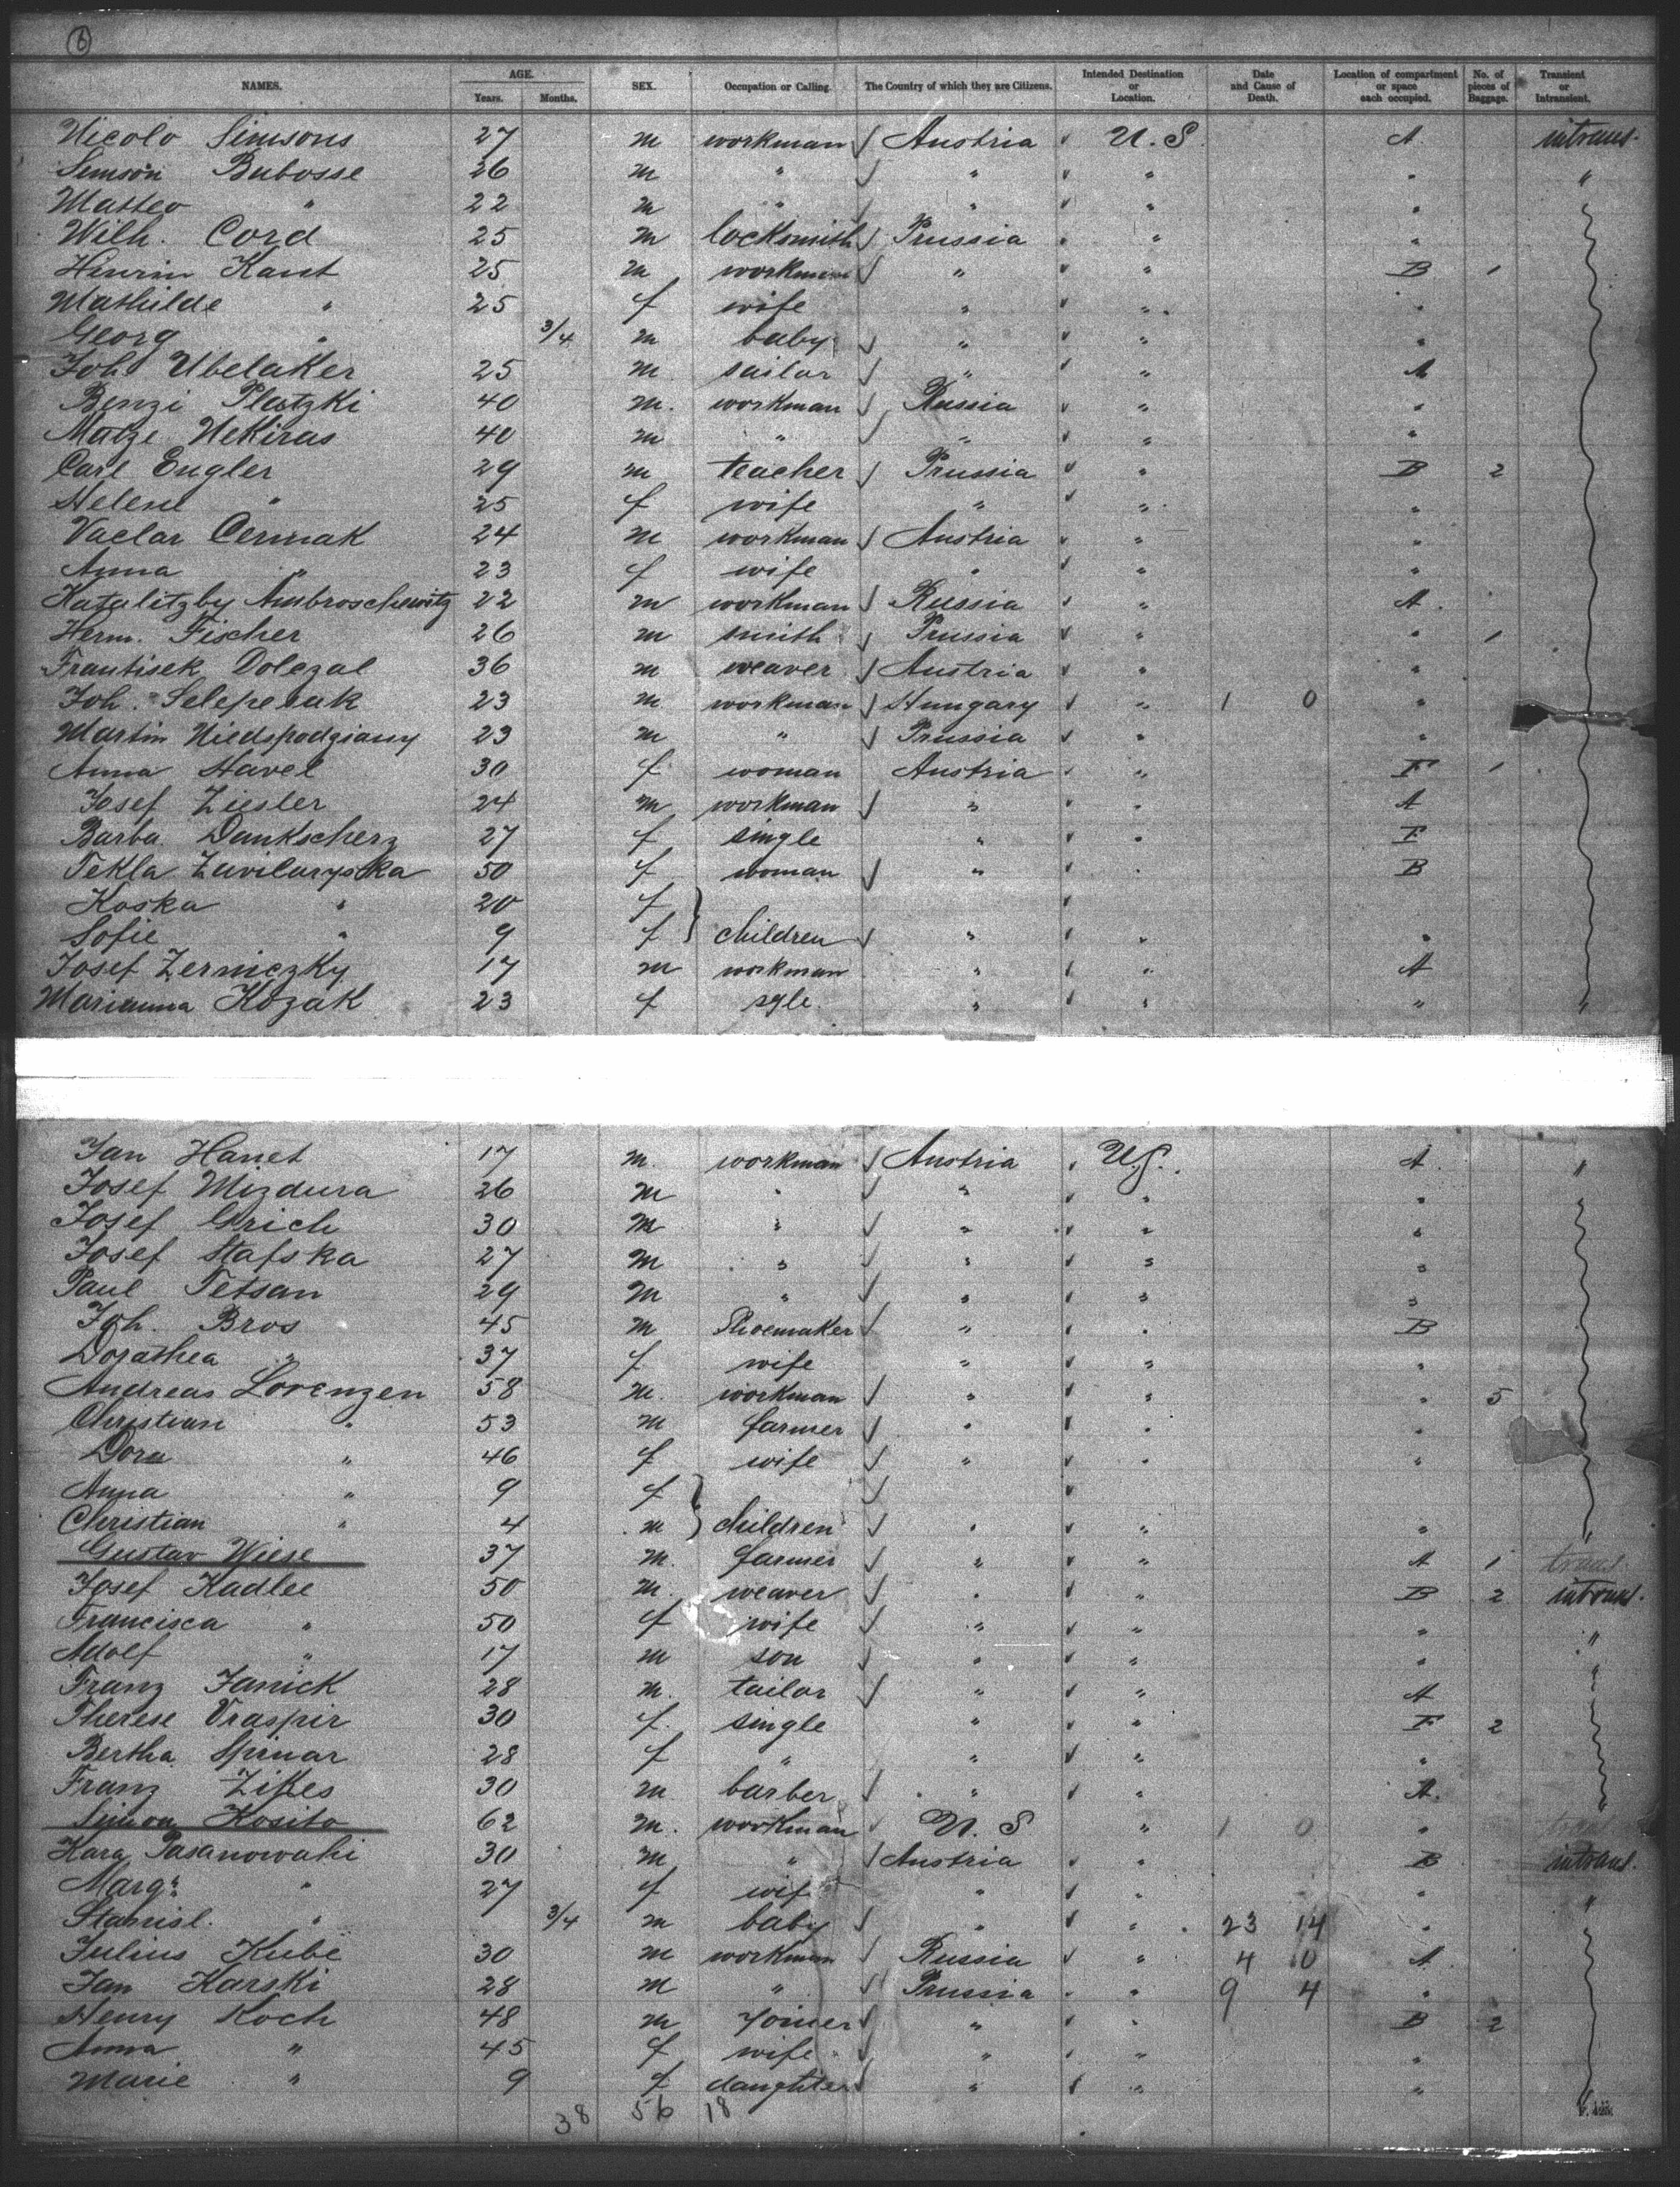 6
NAMES. AGE. Years. Months. SEX. Occupation or Calling. The Country of which they are Citizens. Intended Destination or Location. Date and Cause of Death. Location of compartment or space each occupied. No. of pieces of Baggage. Transient or Intransient.
Nicolo Simsons 27 m workman Austria U.S. A. intrans.
Simson Bubosse 26 m " " " " "
Matteo " 22 m " " " "
Wilh. Cord 25 m locksmith Prussia " "
Henrin Kant 25 m workman " " B 1
Mathilde " 25 f wife " " "
Georg " 3/4 m baby " " "
Joh. Ubelaker 25 m sailor " " A
Benzi Platzki 40 m. workman Russia " "
Matze Nekiras 40 m " " " "
Carl Engler 29 m teacher Prussia " B 2
Helene " 25 f wife " " "
Vaclar Cermak 24 m workman Austria " "
Anna " 23 f wife " " "
Katalitzby Ambroschewitz 22 m workman Russia " A.
Herm. Fischer 26 m smith Prussia " " 1
Frantisek Dolezal 36 m weaver Austria " "
Joh. Selepesak 23 m workman Hungary " 1 0 "
Martin Niedspodziany 23 m " Prussia " "
Anna Havel 30 f woman Austria " F 1
Josef Ziesler 24 m workman " " A
Barba. Dankscherz 27 f single " " F
Tekla Zavilaryska 50 f woman " " B
Koska " 20 f
Sofie " 9 f children " " "
Josef Zerniczky 17 m workman " " A
Marianna Kozak 23 f sgle. " " " "
Jan Hanet 17 m. workman Austria U.S. A. "
Josef Mizdura 26 m " " " "
Josef Grich 30 m " " " "
Josef Stafska 27 m " " " "
Paul Tetsan 29 m " " " "
Joh. Bros 45 m Shoemaker " " B
Dorathea " 37 f wife " " "
Andreas Lorenzen 58 m. workman " " " 5
Christian " 53 m farmer " " "
Dora " 46 f wife " " "
Anna " 9 f
Christian " 4 m children " " " "
Gustav Wiese 37 m. farmer " " A 1 trans.
Josef Kadlec 50 m. weaver " " B 2 intrans.
Francisca " 50 f wife " " " "
Adolf " 17 m son " " " "
Franz Janick 28 m. tailor " " A
Therese Vraspir 30 f. single " " F 2
Bertha Spinar 28 f " " " "
Franz Zikes 30 m barber " " A. "
Simon Kosito 62 m. workman U.S " 1 0 "
Kara Pasanowahi 30 m " Austria " B intrans.
Margr. " 27 f wife " " " "
Stanisl. " 3/4 m baby " " 23 14 "
Julius Kube 30 m workman Russia " 4 0 A
Jan Karski 28 m " Prussia " 9 4 "
Henry Koch 48 m Joiner " " B 2
Anna " 45 f wife " " "
Marie " 9 f daughter " " "
38 56 18